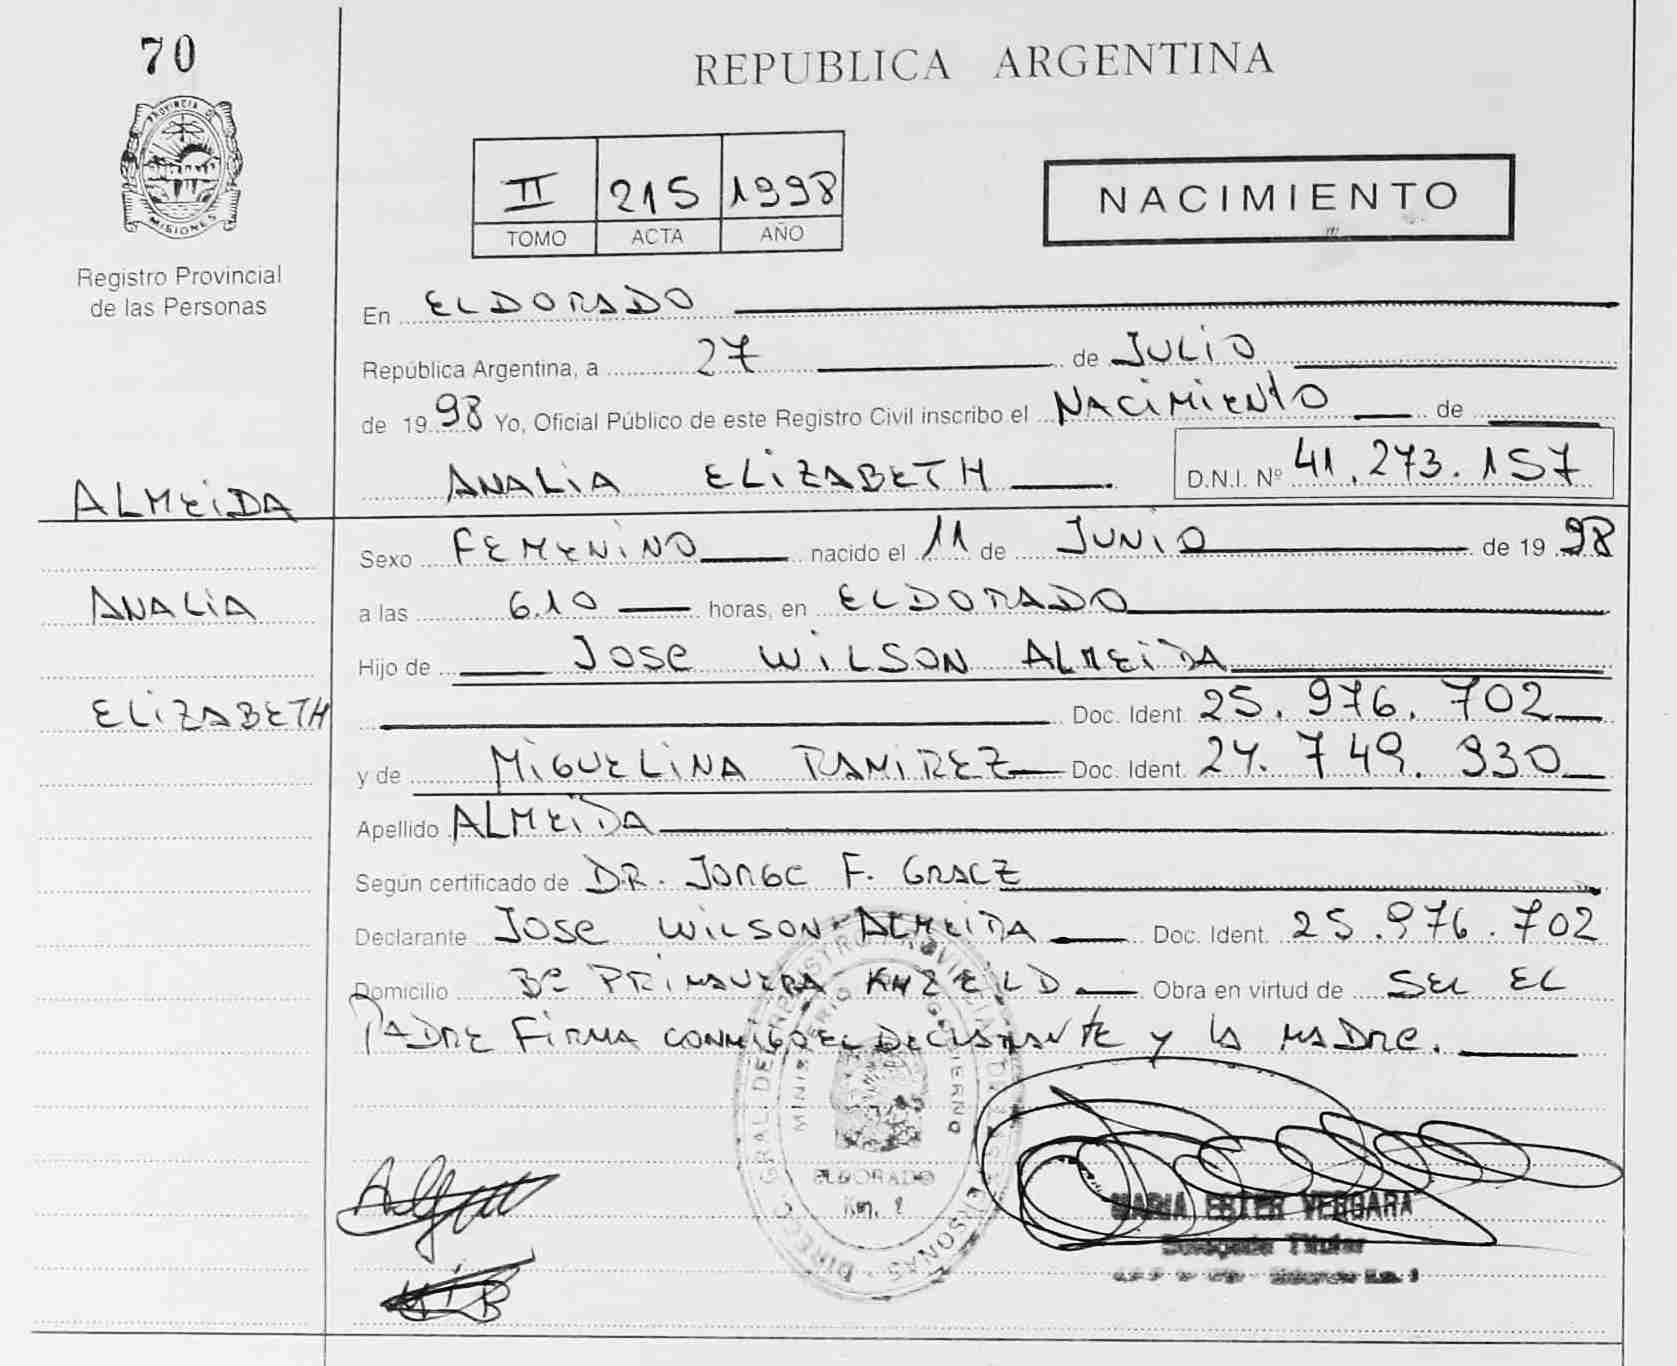 70
PROVINCIA DE
MISIONES
Registro Provincial
de las Personas
ALMEIDA
ANALIA
ELIZABETH
REPUBLICA ARGENTINA
II 215 1998
TOMO ACTA AÑO
NACIMIENTO
En ELDORADO
República Argentina, a 27 de JULIO
de 1998 Yo, Oficial Público de este Registro Civil inscribo el NACIMIENTO de
ANALIA ELIZABETH D.N.I. Nº 41.273.157
Sexo FEMENINO nacido el 11 de JUNIO de 1998
a las 6.10 horas, en ELDORADO
Hijo de JOSE WILSON ALMEIDA
Doc. Ident. 25.976.702
y de MIGUELINA RAMIREZ Doc. Ident. 24.749.930
Apellido ALMEIDA
Según certificado de DR. JORGE F. GRACZ
Declarante JOSE WILSON ALMEIDA Doc. Ident. 25.976.702
Domicilio Bº PRIMAVERA KM2 ELD Obra en virtud de SER EL
PADRE FIRMA CONMIGO EL DECLARANTE y LA MADRE.
MINISTERIO GOBIERNO
ELDORADO
Km.
MARIA ESTER VERGARA
Titular